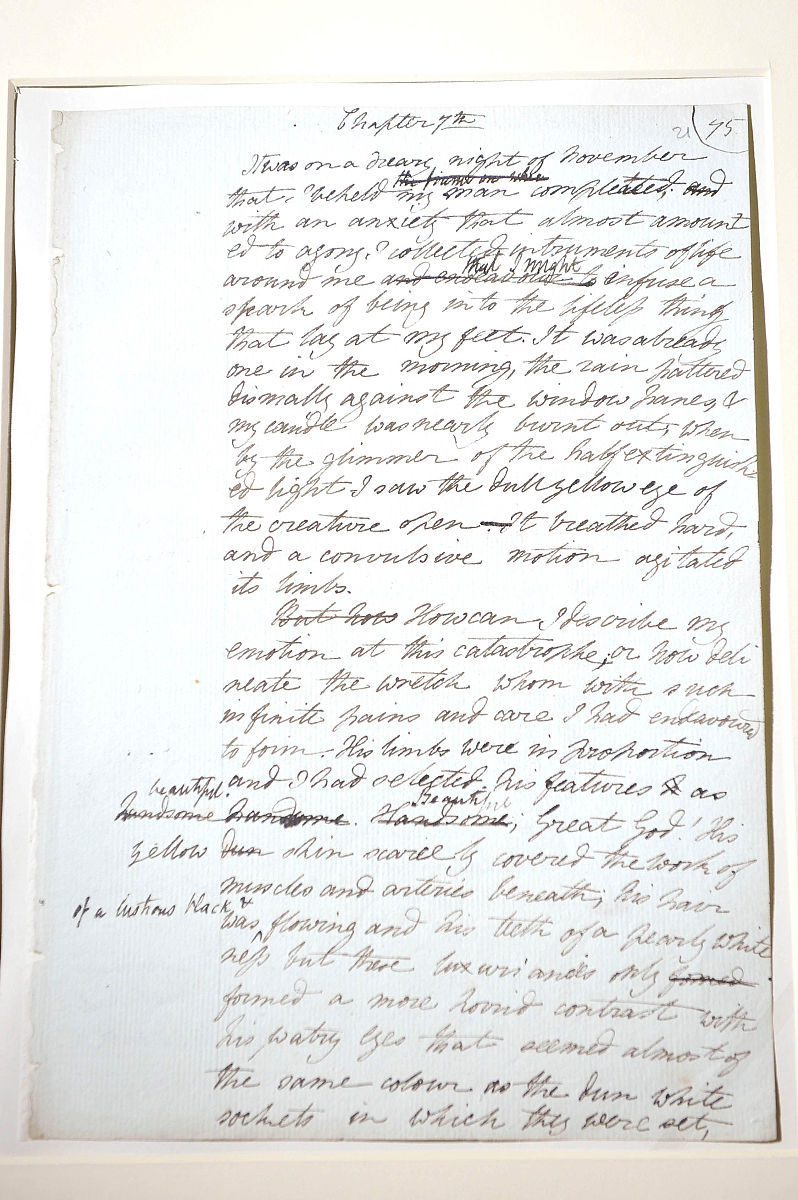 Chapter 7th
21 75
It was on a dreary night of November
the frame on whic
that I beheld my man compleated; and
with an anxiety that almost amount
ed to agony, I collected instruments of life
that I might
around me and endeavour to infuse a
spark of being into the lifeless thing
that lay at my feet. It was already
one in the morning, the rain pattered
dismally against the window panes, &
my candle was nearly burnt out, when
by the glimmer of the half extinguish
ed light I saw the dull yellow eye of
the creature open – It breathed hard,
and a convulsive motion agitated
its limbs.
But how How can I describe my
emotion at this catastrophe; or how deli
neate the wretch whom with such
infinite pains and care I had endeavoured
to form. His limbs were in proportion
and I had selected his features & as
beautiful.
beautiful
handsome handsome. Handsome; Great God! His
yellow dun skin scarcely covered the work of
muscles and arteries beneath; his hair
of a lustrous black &
was flowing and his teeth of a pearly white
ness but these luxuriancies only formed
formed a more horrid contrast with
his watry eyes that seemed almost of
the same colour as the dun white
sockets in which they were set,